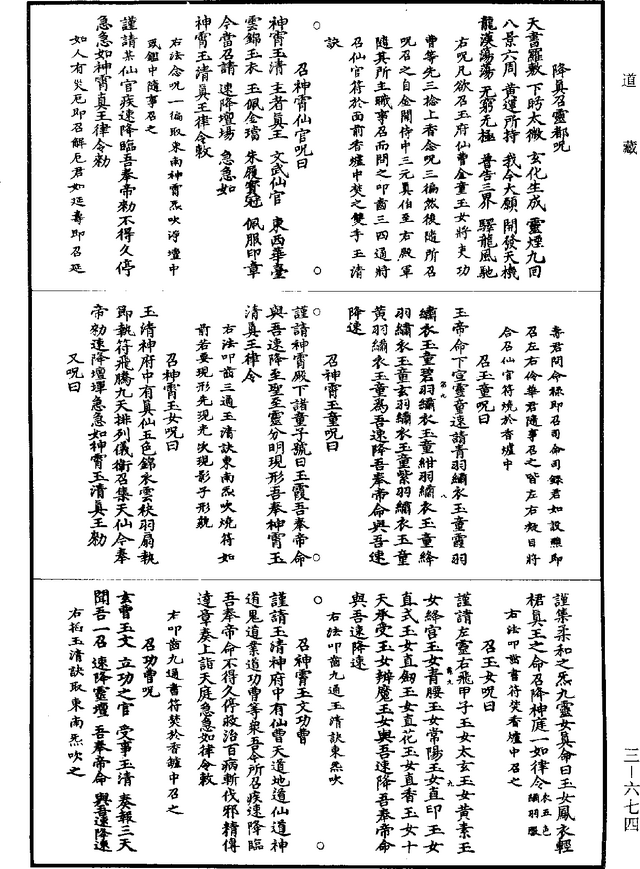 道藏
降真召靈都呪
天書羅敷　下眄太微　玄化生成　靈煙九囘
八景六周　黃運所持　我今大願　開發天機
龍漢蕩蕩　无窮无極　普告三界　驛龍風馳
右呪凡欲召玉府仙曹金童玉女將吏功
曹等先三捻上香念呪三徧然後隨所召
呪召之自金闕侍中三元真伯至右殿軍
隨其所主職事召而問之叩齒三四通將
召仙官符於面前香爐中焚之雙手玉清
訣
召神霄仙官呪曰
神霄玉清　主者真王　文武仙官　東西華臺
雲錦玉衣　玉佩金璫　朱履寶冠　佩服印章
今當召請　速降壇場　急急如
神霄玉清真王律令敕
右法念呪一徧取東南神霄炁吹淨壇中
或鑑中隨事召之
謹請某仙官疾速降臨吾奉帝勑不得久停
急急如神霄真王律令勑
如人有災厄即召解厄君如延壽即召延
壽君問命祿即召司命司錄君如設醮即
召左右伶華君隨事召之皆左右凝目將
合召仙官符燒於香爐中
召玉童呪曰
玉帝命下宣靈童速請青羽繡衣玉童霞羽
繡衣玉童碧羽繡衣玉童紺羽繡衣玉童絳
羽繡衣玉童玄羽繡衣玉童紫羽繡衣玉童
黃羽繡衣玉童為吾速降吾奉帝命與吾速
降速
召神霄玉童呪曰
謹請神霄殿下諸童子號曰玉霞吾奉帝命
與吾速降至聖至靈分明現形吾奉神霄玉
清真王律令
右法叩齒三通玉清訣東南炁吹燒符如
前若要現形先現光次現影子形貌
召神霄玉女呪曰
玉清神府中有真仙五色錦衣雲袂羽扇執
即執符飛騰九天排列儀衛召集天仙令奉
帝勑速降壇墠急急如神霄玉清真王勑
又呪曰
謹集柔和之炁九靈女真命曰玉女鳳衣輕
裙真王之命召降神庭一如律令衣五色繡羽服
右法叩齒書符焚香爐中召之
召玉女呪曰
謹請左靈右飛甲子玉女太玄玉女黃素玉
女絳宮玉女青腰玉女常陽玉女直印玉女
直式玉女直劒玉女直花玉女直香玉女十
天承受玉女辨魔玉女與吾速降吾奉帝命
與吾速降速
右法叩齒九通玉清訣東炁吹
召神霄玉文功曹
謹請玉清神府中有仙曹天道地道仙道神
道鬼道業道功曹等衆吾今所召疾速降臨
吾奉帝命不得久停敀治百病斬伐邪精傳
達章奏上詣天庭急急如律令敕
右叩齒九通書符焚於香爐中召之
召功曹呪
玄曹玉文　立功之官　受事玉清　奏報三天
聞吾一召　速降靈壇　吾奉帝命　與吾速降速
右掐玉清訣取東南炁吹之
三—六七四